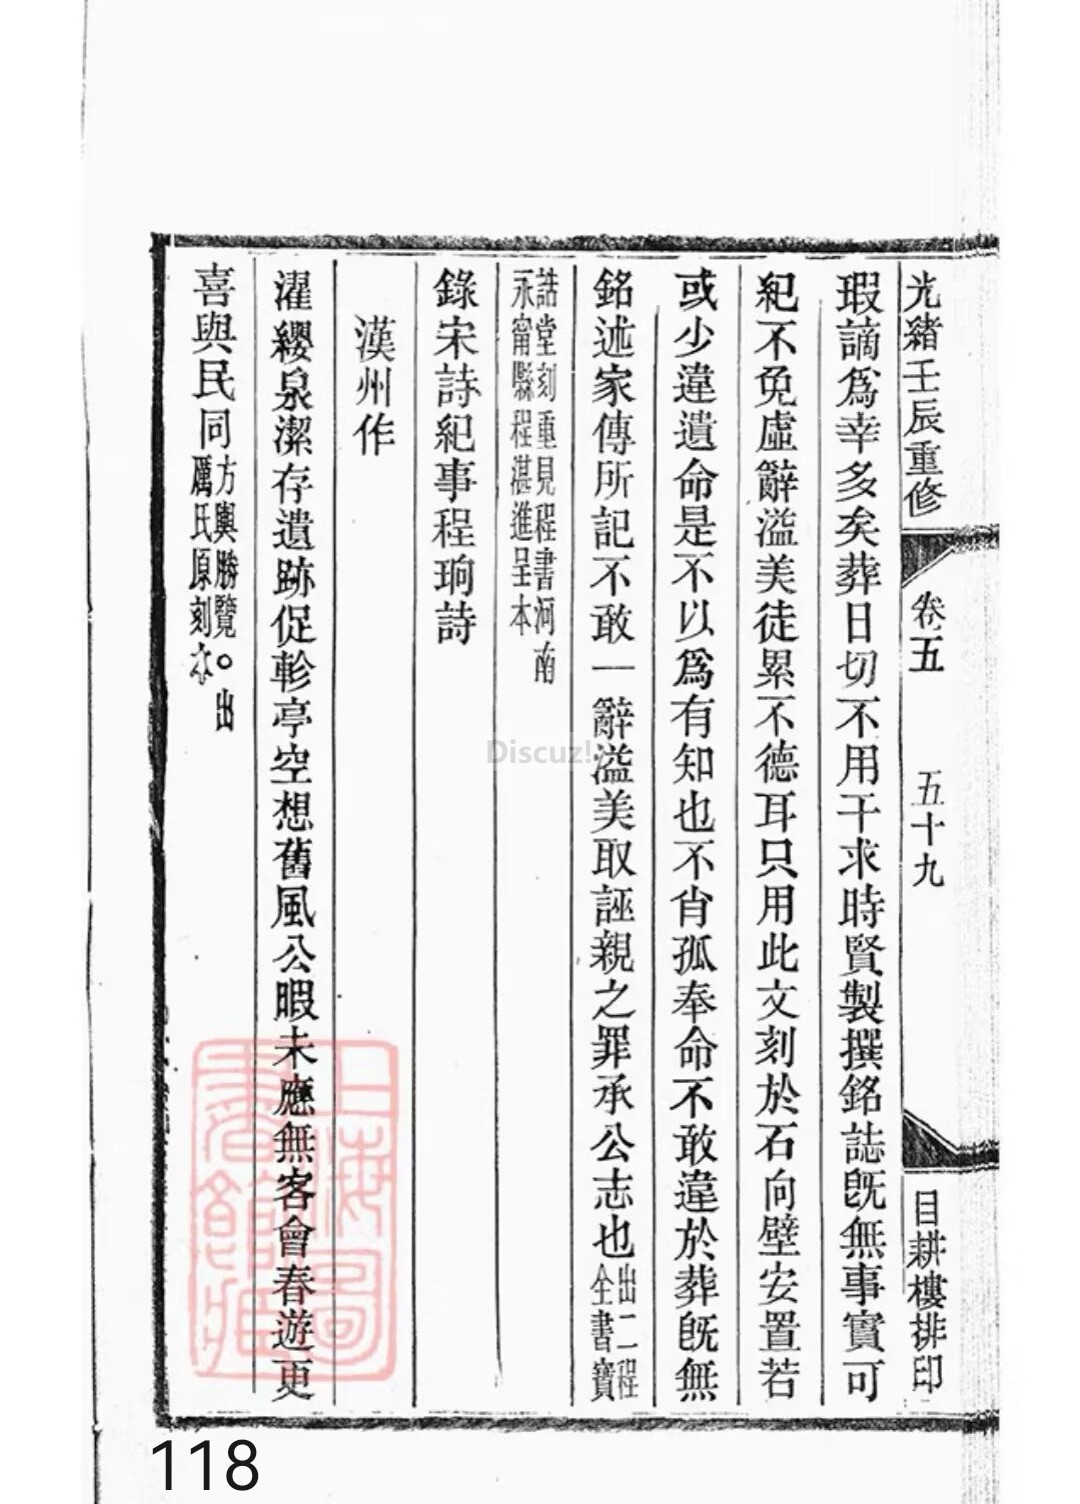 光緒壬辰重修
卷五
五十九
目耕樓排印
瑕謫爲幸多矣葬日切不用干求時賢製撰銘誌旣無事實可
紀不免虛辭溢美徒累不德耳只用此文刻於石向壁安置若
或少違遺命是不以爲有知也不肖孤奉命不敢違於葬旣無
銘述家傳所記不敢一辭溢美取誣親之罪承公志也出二程
仝書寶
誥堂刻重見程書河南
永甯縣程湛進呈本
錄宋詩紀事程珦詩
漢州作
濯纓泉潔存遺跡促軫亭空想舊風公暇未應無客會春遊更
喜與民同方輿勝覽。出
厲氏原刻本
Discuz!
上海圖
書館藏
118